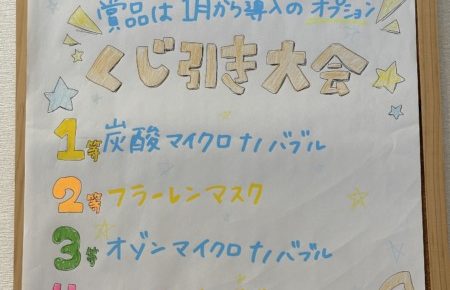 賞品は1月から導入のオプション
くじ引き大会
1等 炭酸マイクロナノバブル
2等 フラーレンマスク
3等 オゾンマイクロナノバブル